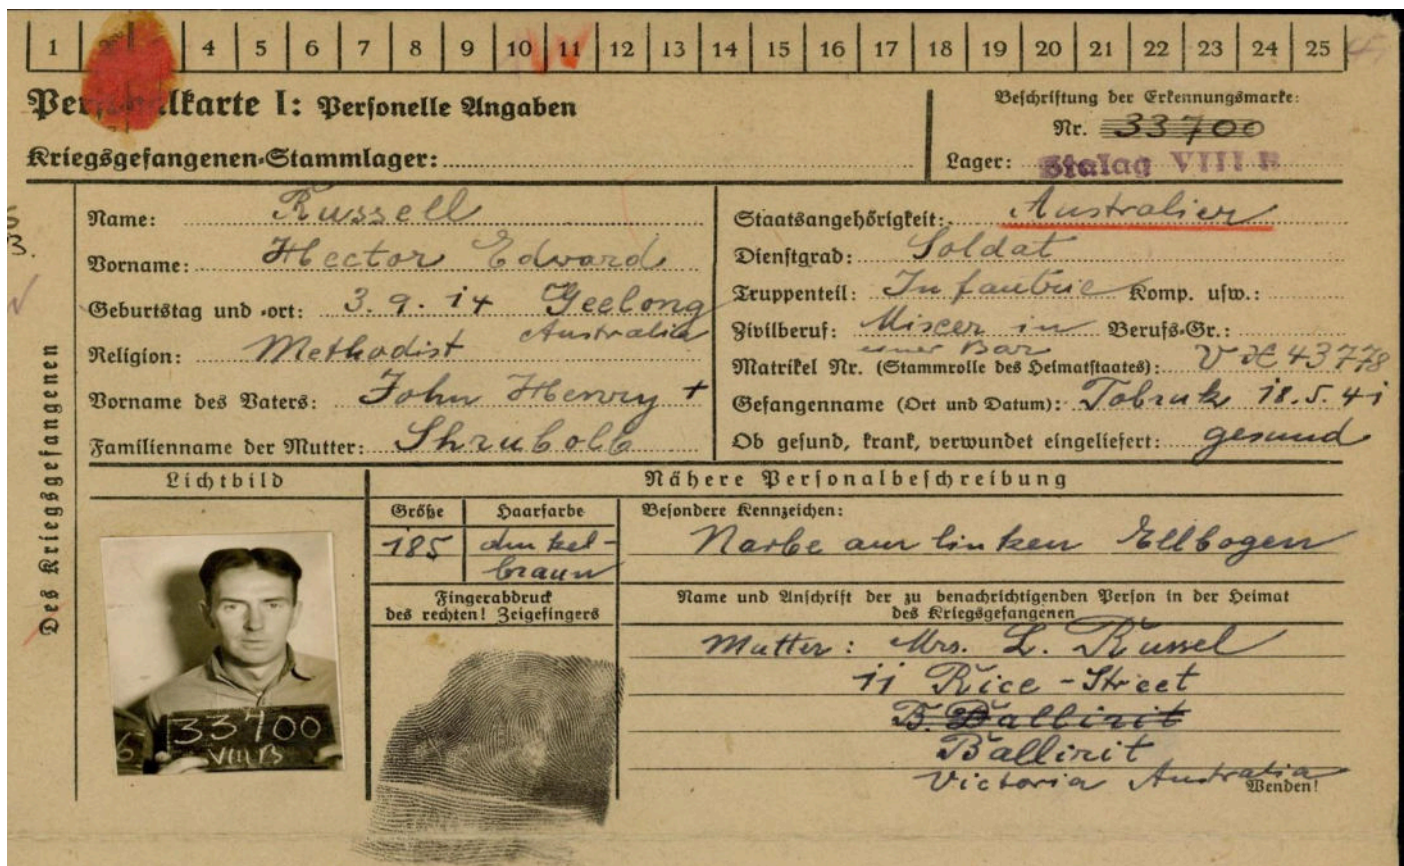 1 4 5 6 7 8 9 10 11 12 13 14 15 16 17 18 19 20 21 22 23 24 25
Personalkarte I: Personelle Angaben
Kriegsgefangenen-Stammlager:
Beschriftung der Erkennungsmarke:
Nr. 33700
Lager: Stalag VIII B
Des Kriegsgefangenen
Name: Russell
Vorname: Hector Edward
Geburtstag und -ort: 3.9.14 Geelong
Australia
Religion: Methodist
Vorname des Vaters: John Henry +
Familienname der Mutter: Shrubolb
Staatsangehörigkeit: Australier
Dienstgrad: Soldat
Truppenteil: Infanterie Komp. usw.:
Zivilberuf: Mixer in Berufs-Gr.:
einer Bar
Matrikel Nr. (Stammrolle des Heimatstaates): VX 43778
Gefangenname (Ort und Datum): Tobruk 18.5.41
Ob gesund, krank, verwundet eingeliefert: gesund
Lichtbild
33700
VIII B
Nähere Personalbeschreibung
Größe Haarfarbe
185 dunkel-
braun
Besondere Kennzeichen:
Narbe am linken Ellbogen
Fingerabdruck
des rechten! Zeigefingers
Name und Anschrift der zu benachrichtigenden Person in der Heimat
des Kriegsgefangenen
Mutter: Mrs. L. Russel
11 Rice-Street
B. Ballirit
Ballirit
Victoria Australia
Wenden!